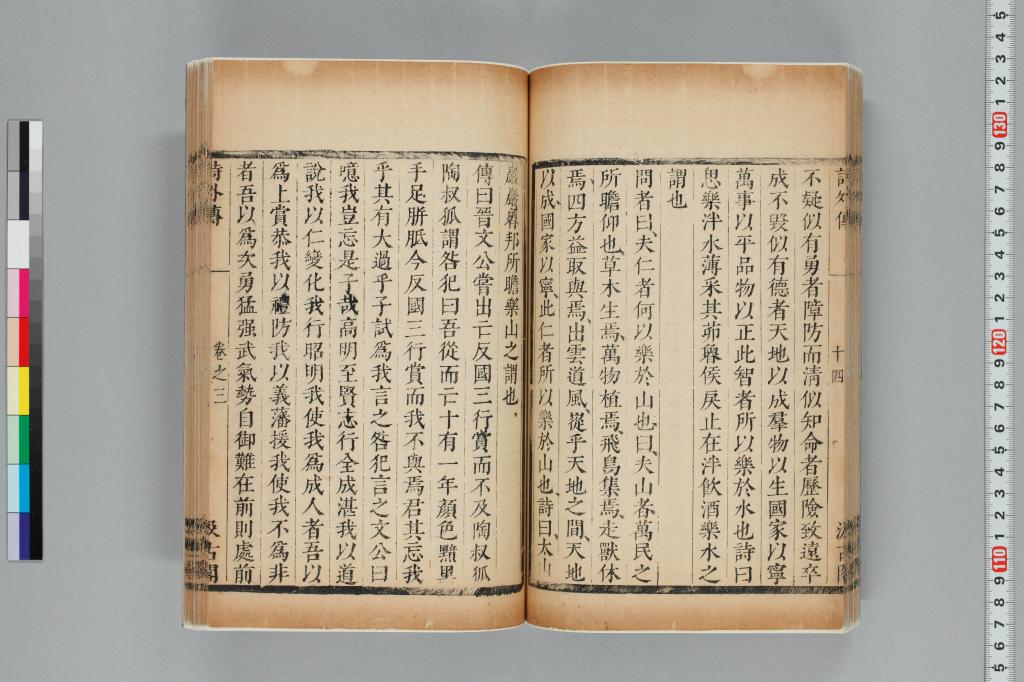 詩外傳
十四
汲古閣
不疑似有勇者障防而清似知命者歷險致遠卒
成不毀似有德者天地以成羣物以生國家以寧
萬事以平品物以正此智者所以樂於水也詩曰
思樂泮水薄采其茆魯侯戾止在泮飲酒樂水之
謂也
問者曰夫仁者何以樂於山也曰夫山者萬民之
所瞻仰也草木生焉萬物植焉飛鳥集焉走獸休
焉四方益取與焉出雲道風嵸乎天地之間天地
以成國家以寧此仁者所以樂於山也詩曰太山
巖巖魯邦所瞻樂山之謂也
傳曰晉文公嘗出亡反國三行賞而不及陶叔狐
陶叔狐謂咎犯曰吾從而亡十有一年顏色黯黑
手足胼胝今反國三行賞而我不與焉君其忘我
乎其有大過乎子試為我言之咎犯言之文公曰
噫我豈忘是子哉高明至賢志行全成湛我以道
說我以仁變化我行昭明我使我為成人者吾以
為上賞恭我以禮防我以義藩援我使我不為非
者吾以為次勇猛强武氣勢自御難在前則處前
詩外傳
卷之三
汲古閣